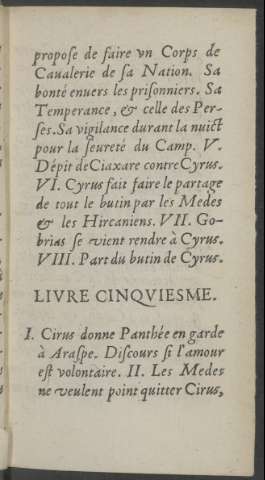 propoſe de faire vn Corps de
Caualerie de ſa Nation. Sa
bonté enuers les priſonniers. Sa
Temperance, & celle des Per-
ſes. Sa vigilance durant la nuict
pour la ſeureté du Camp. V.
Dépit de Ciaxare contre Cyrus.
VI. Cyrus fait faire le partage
de tout le butin par les Medes
& les Hircaniens. VII. Go-
brias ſe vient rendre à Cyrus.
VIII. Part du butin de Cyrus.
LIVRE CINQVIESME.
I. Cirus donne Panthée en garde
à Araſpe. Diſcours ſi l'amour
eſt volontaire. II. Les Medes
ne veulent point quitter Cirus,